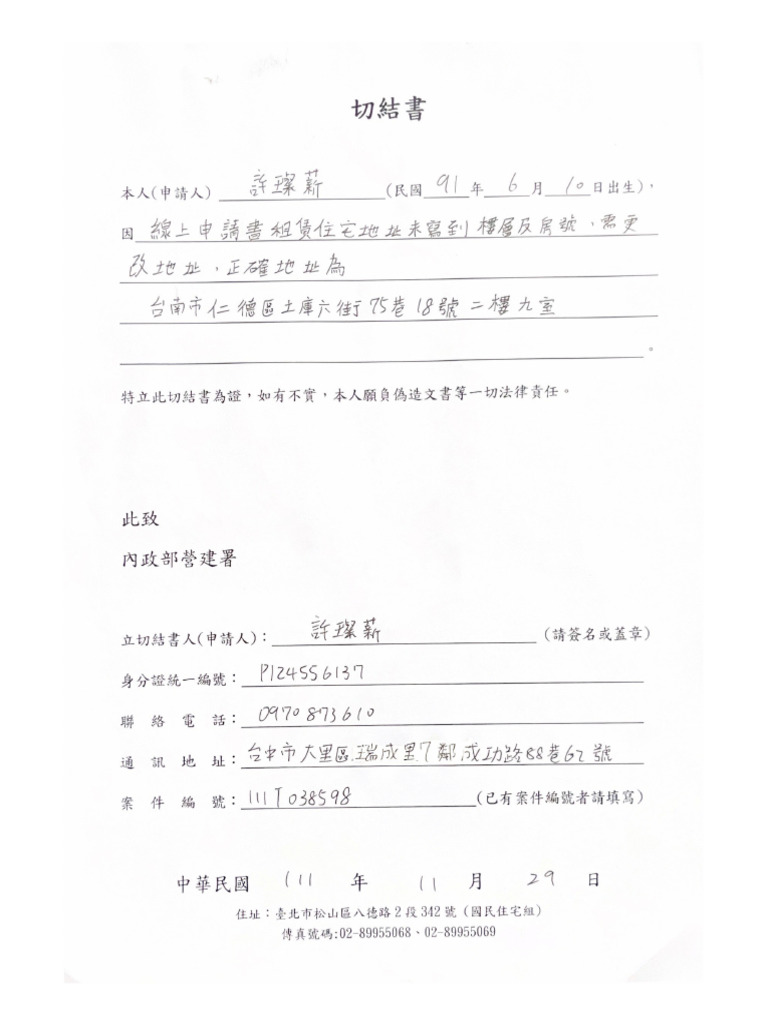 切結書
本人(申請人) 許璨薪 (民國 91 年 6 月 10 日出生)，
因 線上申請書租賃住宅地址未寫到樓層及房號，需更
改地址，正確地址為
台南市仁德區土庫六街75巷18號二樓九室
。
特立此切結書為證，如有不實，本人願負偽造文書等一切法律責任。
此致
內政部營建署
立切結書人(申請人)： 許璨薪 (請簽名或蓋章)
身分證統一編號： P124556137
聯絡電話： 0970873610
通訊地址： 台中市大里區瑞成里7鄰成功路88巷62號
案件編號： 111T038598 (已有案件編號者請填寫)
中華民國 111 年 11 月 29 日
住址：臺北市松山區八德路2段342號（國民住宅組）
傳真號碼:02-89955068、02-89955069